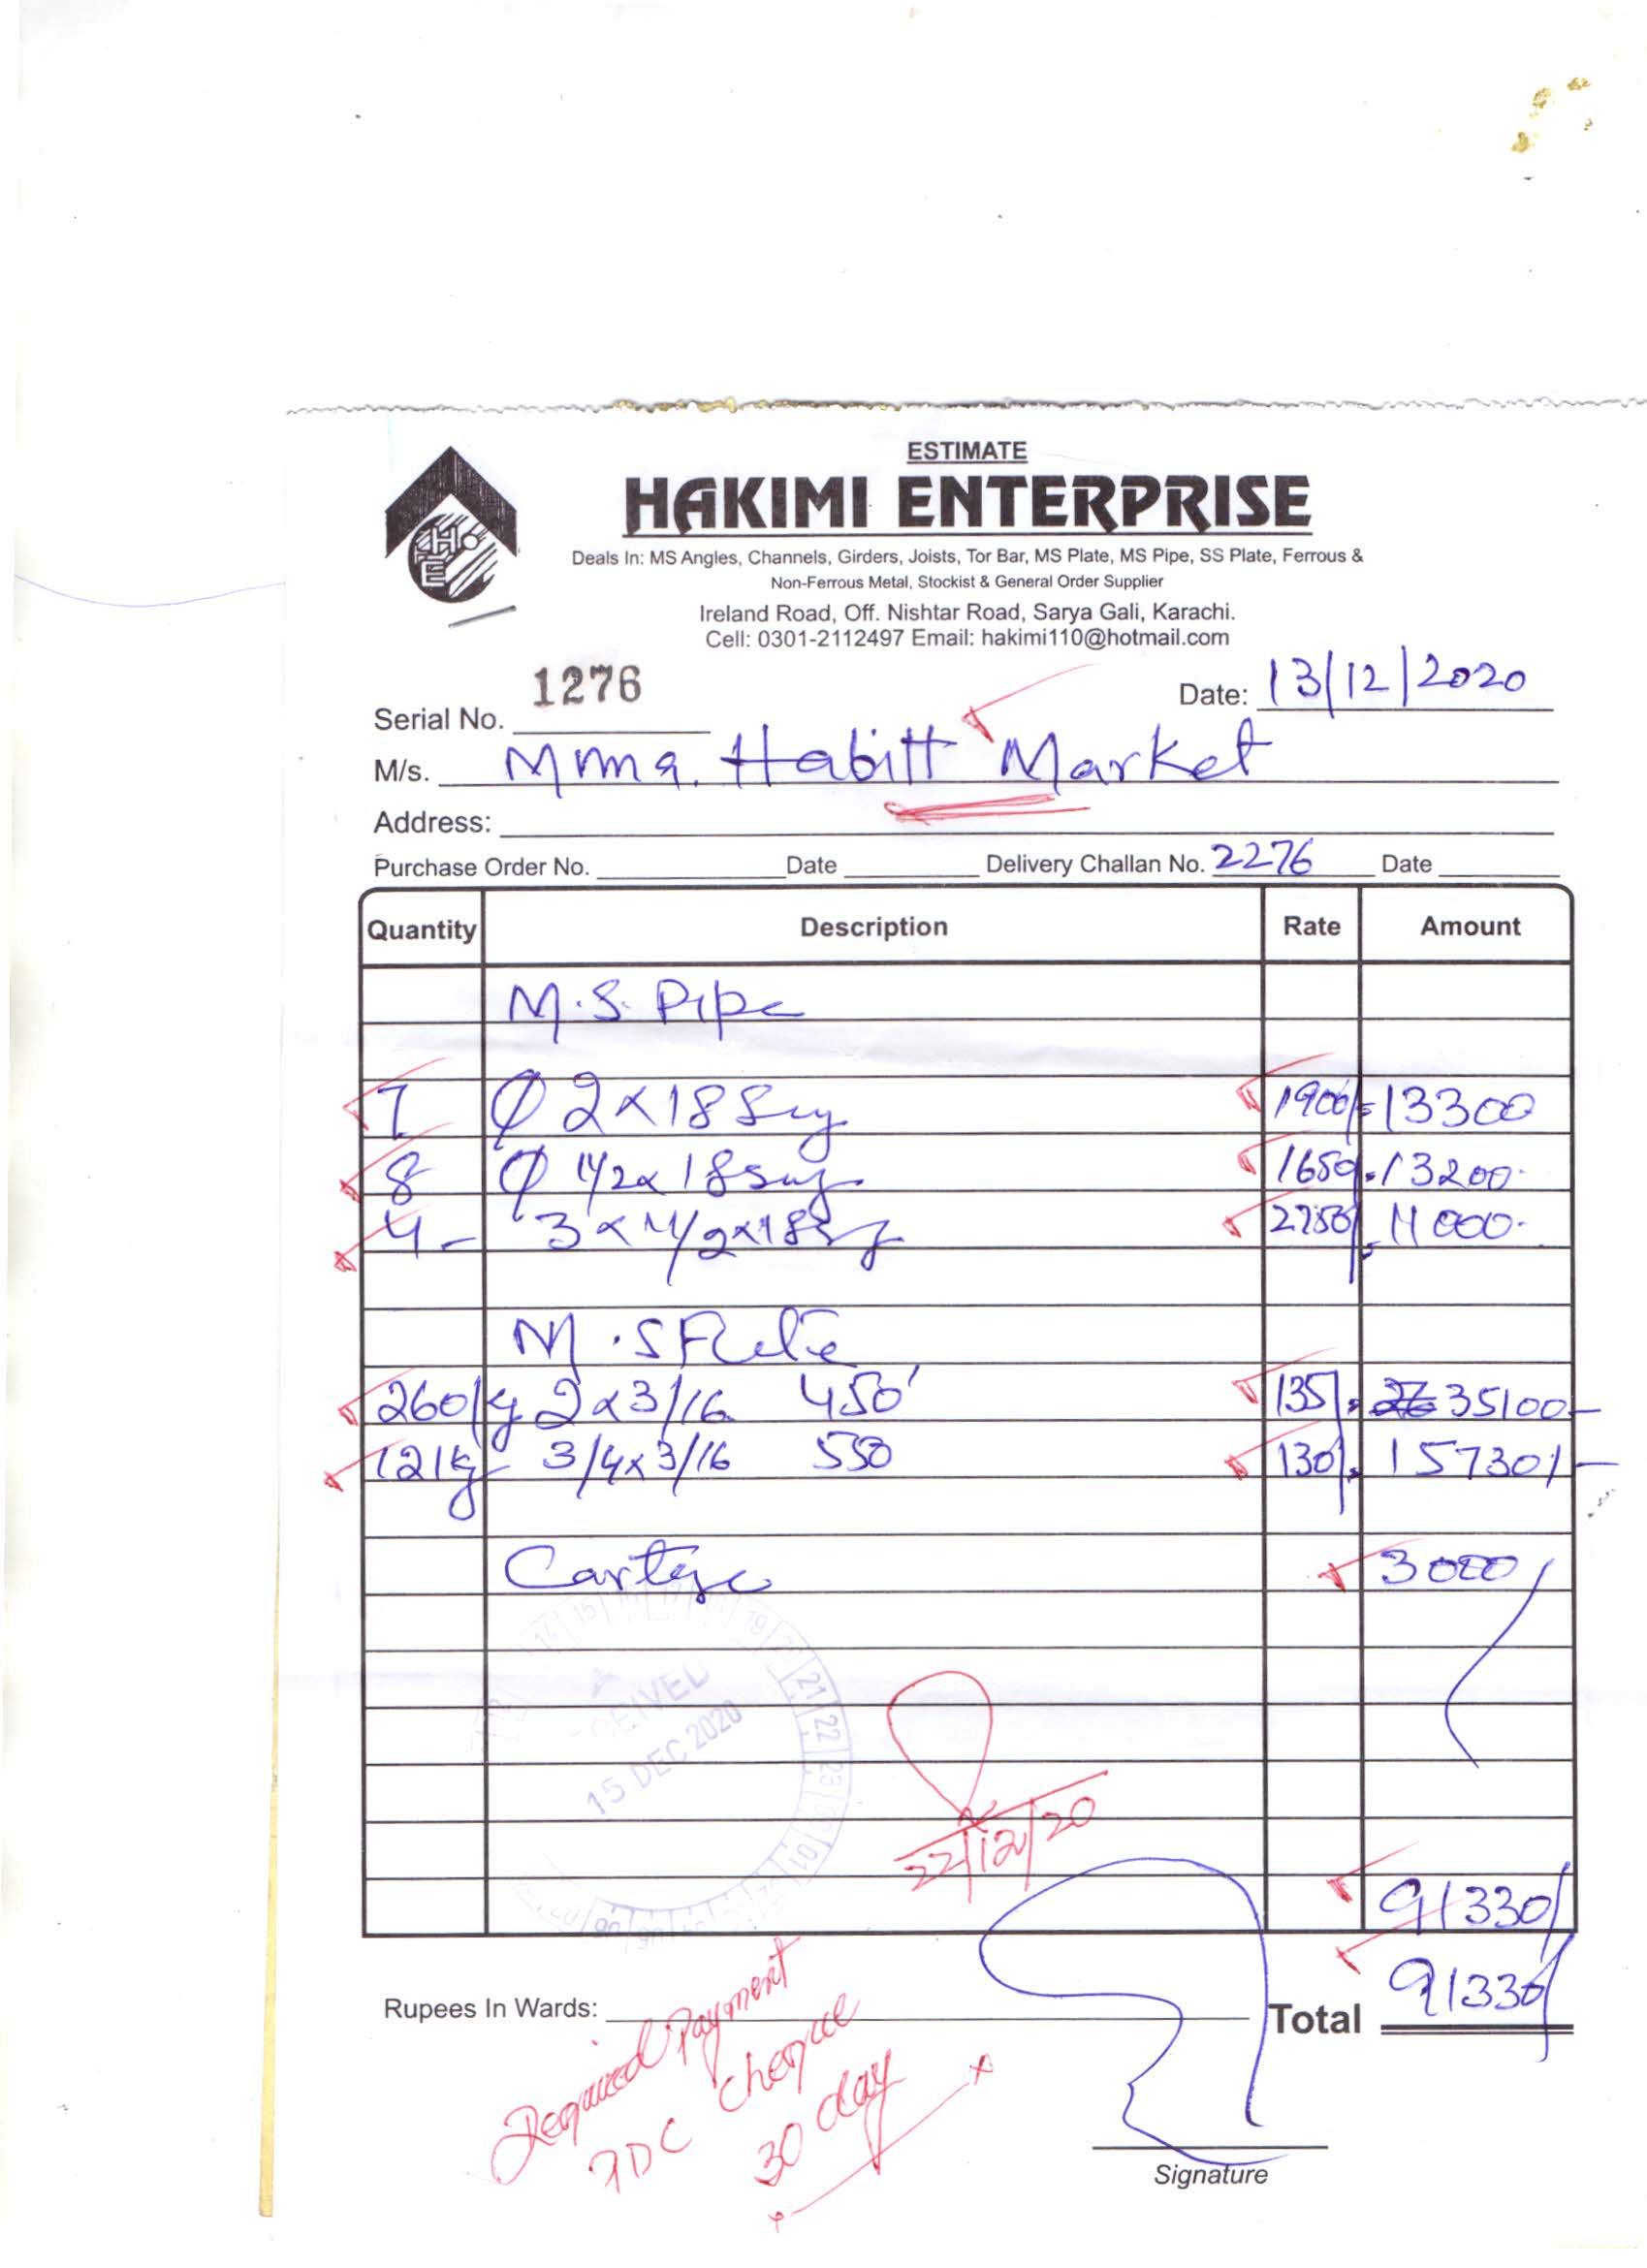 ESTIMATE
HAKIMI ENTERPRISE
Deals In: MS Angles, Channels, Girders, Joists, Tor Bar, MS Plate, MS Pipe, SS Plate, Ferrous &
Non-Ferrous Metal, Stockist & General Order Supplier
Ireland Road, Off. Nishtar Road, Sarya Gali, Karachi.
Cell: 0301-2112497 Email: hakimi110@hotmail.com
Serial No. 1276 Date: 13/12/2020
M/s. Habitt Market
Address:
Purchase Order No. Date Delivery Challan No. 2276 Date
Quantity Description Rate Amount
M.S. Pipe
7 Ø 2x18 1900/- 13300
8 Ø 1 1/2x18 1650/- 13200
4- 3x1 1/2x18 2750/- 11000
M.S
260kg 2x3/16 450' 135/- 35100-
121kg 3/4x3/16 550 130/- 15730/-
Cartage 3000/
15 DEC 2020
22/12/20
91330/
Rupees In Wards: Total 91330/
Required Payment
PDC Cheque
30 day
Signature